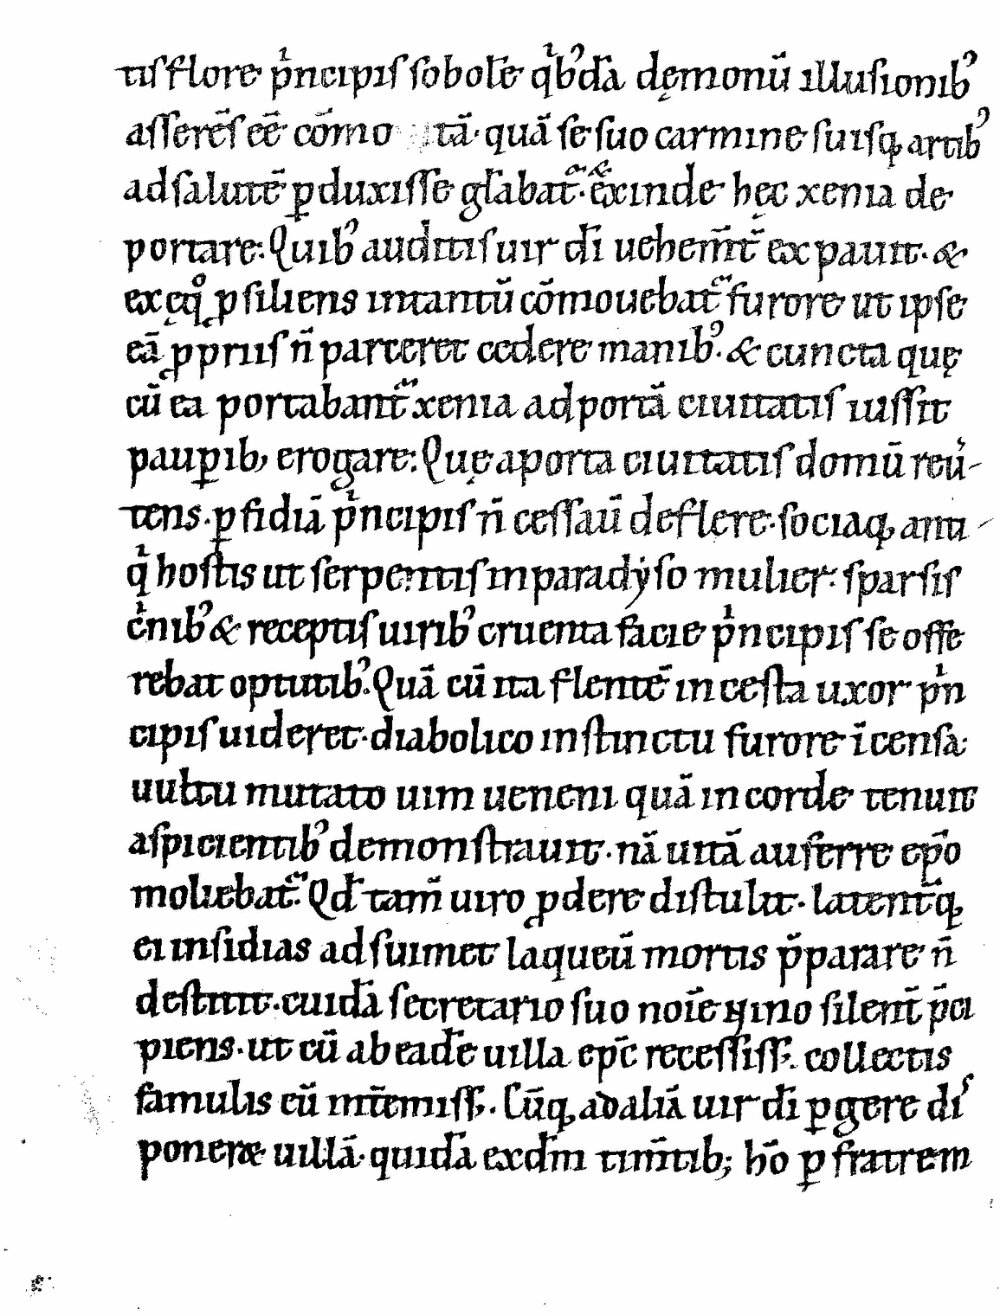 tiſ flore pͥncipiſ ſobolē qͥbꝰdā dęmonū illuſionibꝰ
aſſerēſ eē cōmo tā· quā ſe ſuo carmine ſuiſqꝫ artibꝰ
ad ſalutē ꝑduxiſſe głabat᷑· exinde hęc xenia de
portare: Quibꝰ auditiſ uir dī uehem̄t̄ expauit· &
ex ęqͦ ꝓſiliens intantū cōmouebat᷑ furore ut ipſe
eā ꝓpriiſ n̄ parceret cedere manibꝰ· & cuncta quę
cū ea portabant᷑ xenia ad portā ciuitatiſ iuſſit
pauꝑib; erogare: Quę aporta ciuitatiſ domū reu͛
tens· ꝑfidiā pͥncipiſ n̄ ceſſaū deflere· ſociaqꝫ anti
qͥ hoſtis ut ſerpentiſ inparadẏſo mulier· ſparſiſ
cͥnibꝰ & receptiſ uiribꝰ cruenta facie pͥncipiſ ſe offe
rebat optutibꝰ· Quā cū ita flentē inceſta uxor pͥn
cipiſ uideret· diabolico inſtinctu furore īcenſa·
uultu mutato uim ueneni quā in corde tenuit
aſpicientibꝰ demonſtrauit· nā uitā auferre ep̄o
moliebat᷑· Qđ tam̄ uiro ꝓdere diſtulit· latent̄qꝫ
ei inſidias ad ſuimet laqueū mortis p̄parare n̄
deſtitit· cuidā ſecretario ſuo noīe ſilent̄ p̄ci
piens· ut cū ab eadē uilla ep̄c receſſiſſꝫ· collectis
famulis eū int̄emiſſꝫ· Cūqꝫ ad aliā uir dī ꝑgere diſ
poneret uillā· quidā ex dm̄ tim̄tib; hō ꝑ fratrem